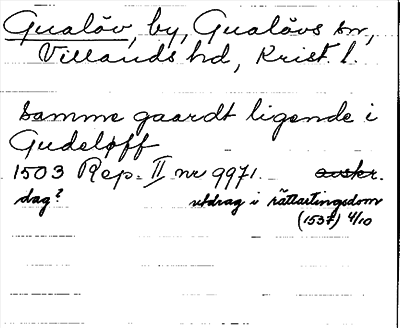 Gualöv, by, Gualövs sn,
Villands hd, Krist. l.
samme gaardt ligende i
Gudeløff
1503 Rep. II nr 9971. avskr.
dag? utdrag i rättartingsdom
(1537) 4/10